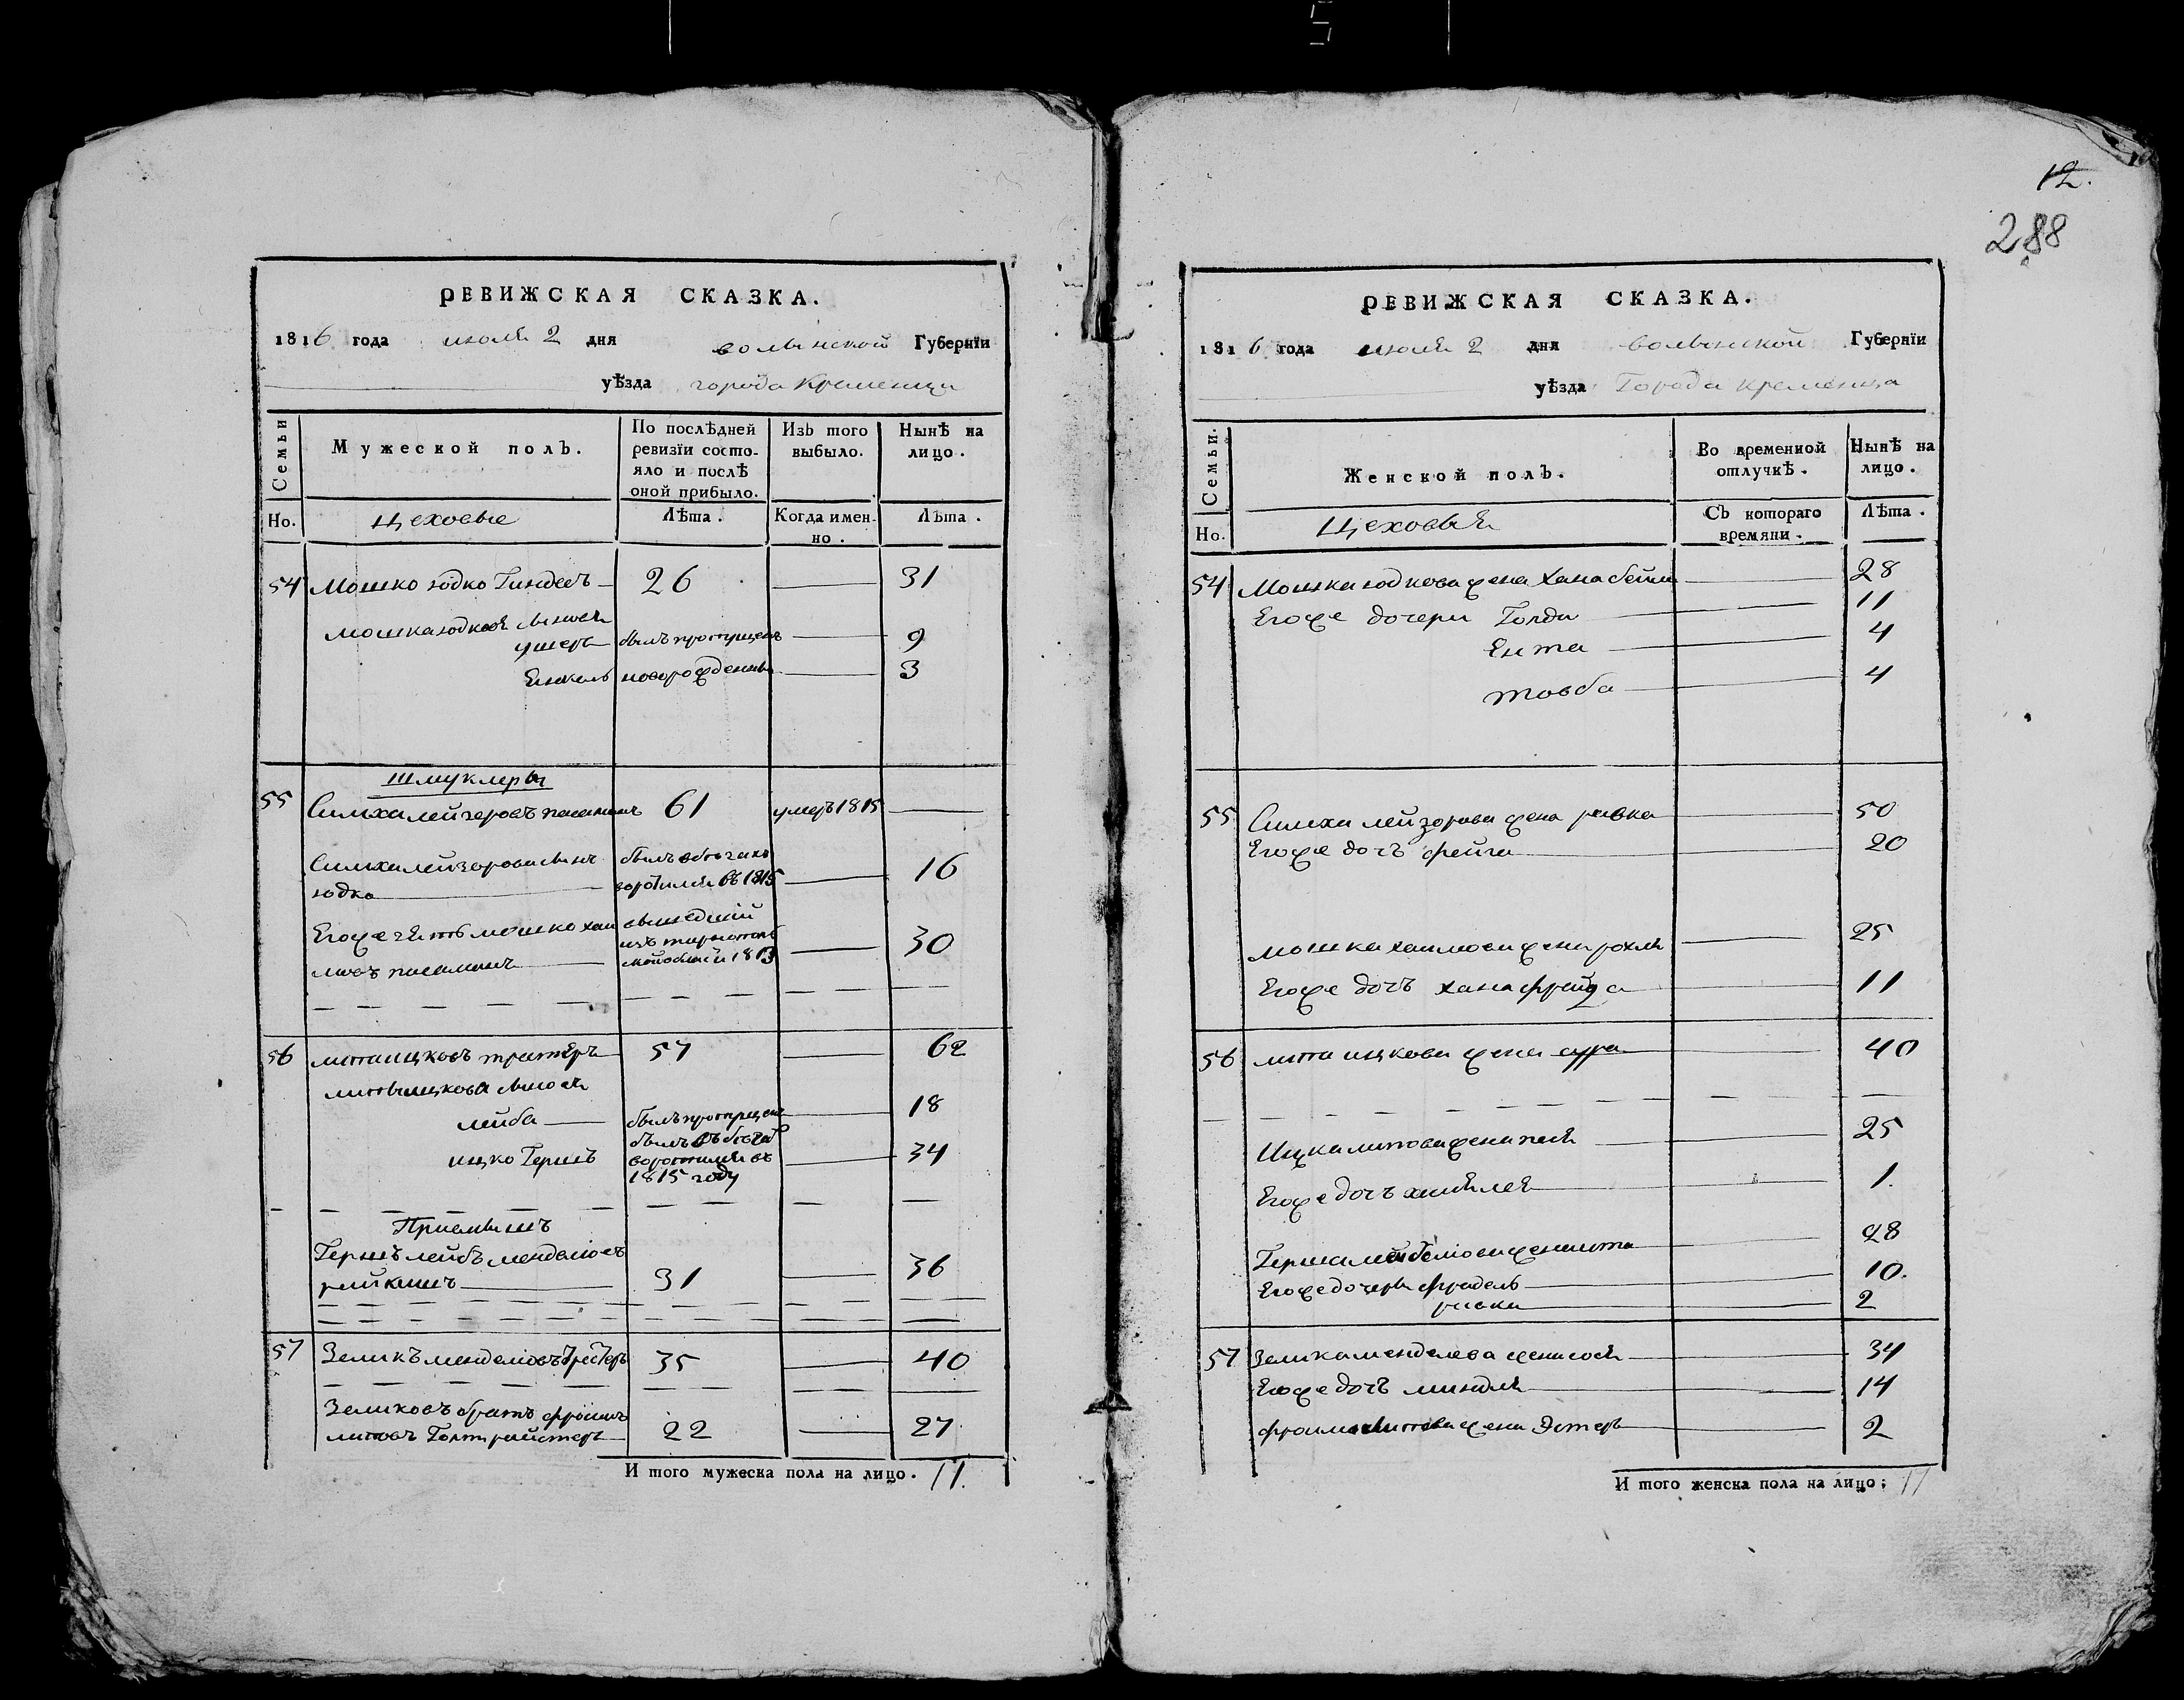 12.
288
РЕВИЖСКАЯ СКАЗКА.
1816 года июля 2 дня волынской Губернїи
уѣзда города Кременца
Семьи
Мужеской полъ.
По послѣдней ревизїи состояло и послѣ оной прибыло.
Изъ того выбыло.
Нынѣ на лицо.
Но.
Цеховые
Лѣта.
Когда именно.
Лѣта.
54 Мошко юдко 26 — 31
Мошка юдкова сыновя
ушеръ былъ пропущенъ — 9
Енкель новорожденны — 3
Шмуклеры
55 Симха лейзеровъ 61 умеръ 1815 —
Симхи лейзорова сынъ
юдко
былъ вбегахъ
воротился въ 1815 — 16
Егоже зять мошко хаи
мовъ
вышедшій
изъ 1813 — 30
56 мота ицковъ 57 — 62
ицкова сыновя
лейба былъ пропущенъ — 18
ицко Гершъ
былъ въ бегахъ
воротился въ
1815 году — 34
Приемышъ
Гершъ лейбъ менделіовъ
31 — 36
57 Зеликъ менделіовъ 35 — 40
Зеликовъ братъ фроимъ
22 — 27
И того мужеска пола на лицо. 11.
РЕВИЖСКАЯ СКАЗКА.
1816 года июля 2 дня волынской Губернїи
уѣзда Города кременца
Семьи.
Женской полъ.
Во временной отлучкѣ.
Нынѣ на лицо.
Но.
Цеховыя
Съ котораго времяни.
Лѣта.
54 Мошка юдкова жена Хана бейла 28
Егоже дочери Голда 11
Ента 4
товба 4
55 Симхи лейзорова жена ривка 50
Егоже дочъ фейга 20
мошка хаимова жена рохля 25
Егоже дочъ хана фрейда 11
56 мота ицкова жена сура 40
Ицка мотова жена песя 25
Егоже дочъ 1.
Герша жена ита 28
Егоже дочеры фрадель 10.
ривка 2
57 Зелика менделева жена сося 34
Егоже дочъ миндля 14
фроима жена Эстеръ 2
И того женска пола на лицо; 17